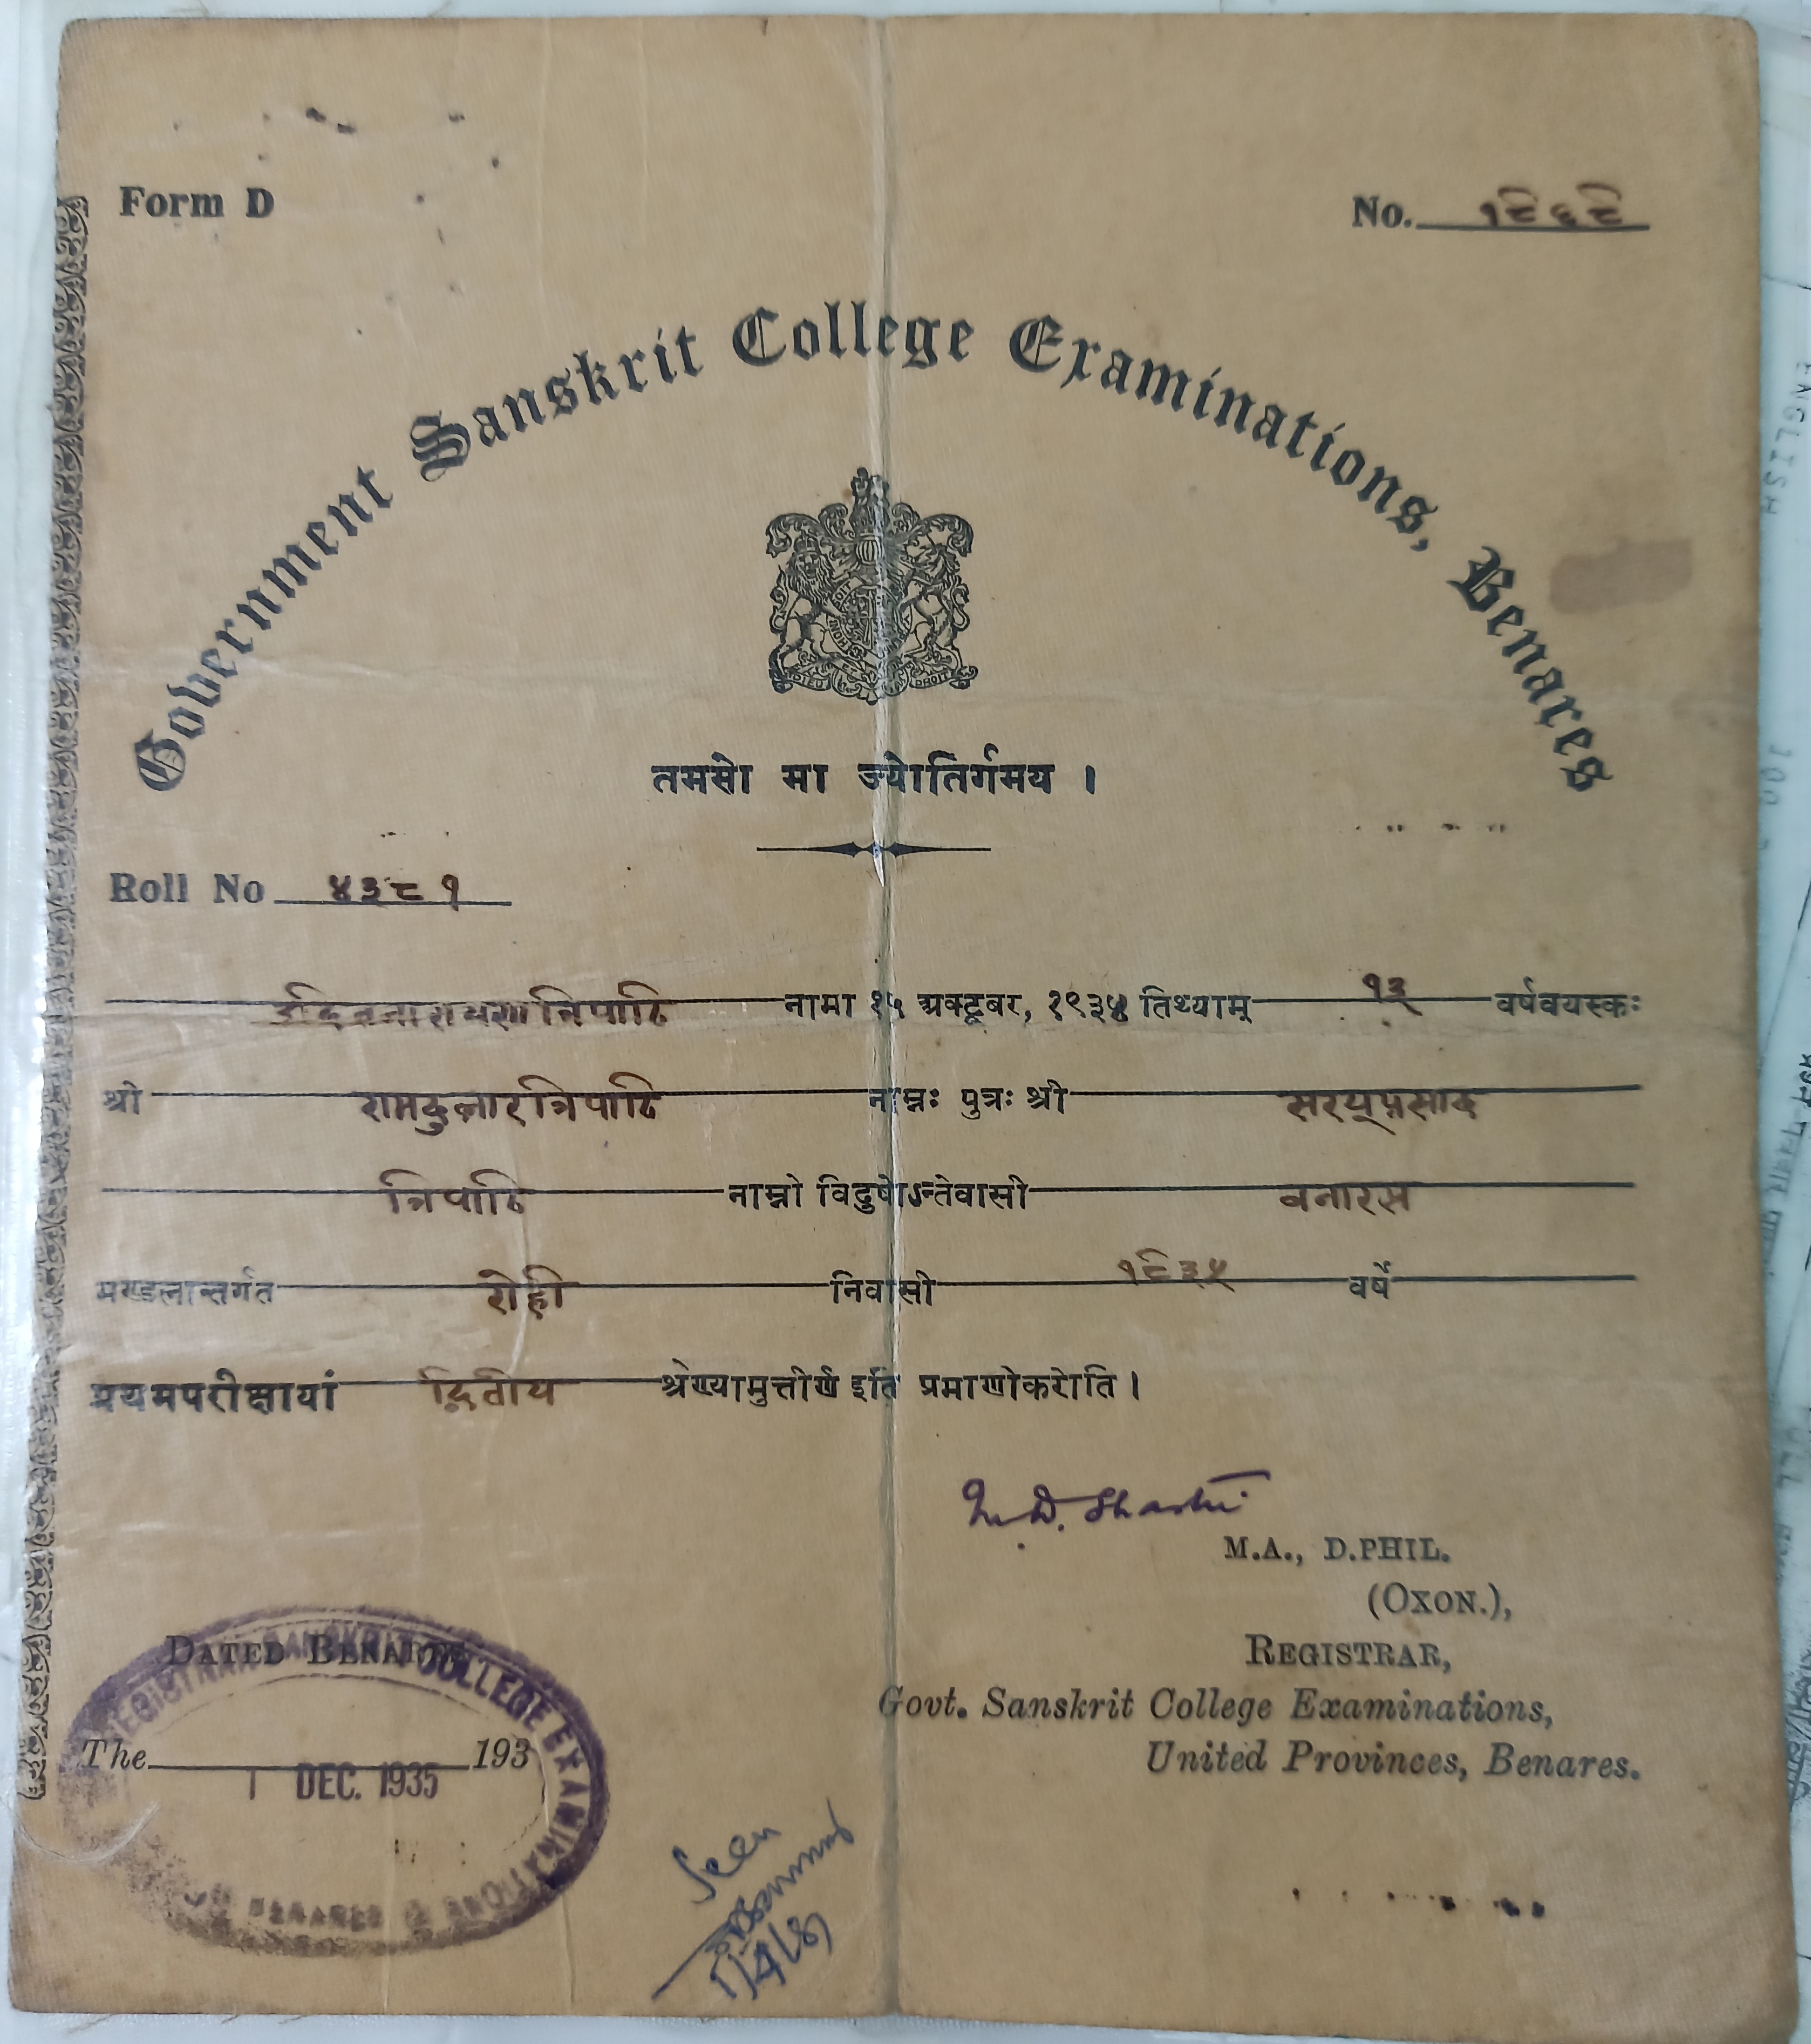 Form D
No. १८६८
Government Sanskrit College Examinations, Benares
तमसो मा ज्योतिर्गमय ।
Roll No ४३८१
उदितनारायणत्रिपाठि नामा १५ अक्टूबर, १९३४ तिथ्याम् १३ वर्षवयस्कः
श्री रामदुलारत्रिपाठि नाम्नः पुत्रः श्री सरयूप्रसाद
त्रिपाठि नाम्नो विदुषोऽन्तेवासी बनारस
मण्डलान्तर्गत रोही निवासी १९३५ वर्षे
प्रथमपरीक्षायां द्वितीय श्रेण्यामुत्तीर्ण इति प्रमाणीकरोति ।
M.D. Shastri
M.A., D.PHIL.
(OXON.),
REGISTRAR,
Govt. Sanskrit College Examinations,
United Provinces, Benares.
DATED BENARES
The 193
1 DEC. 1935
REGISTRAR SANSKRIT COLLEGE EXAMINATIONS
BENARES
Seen